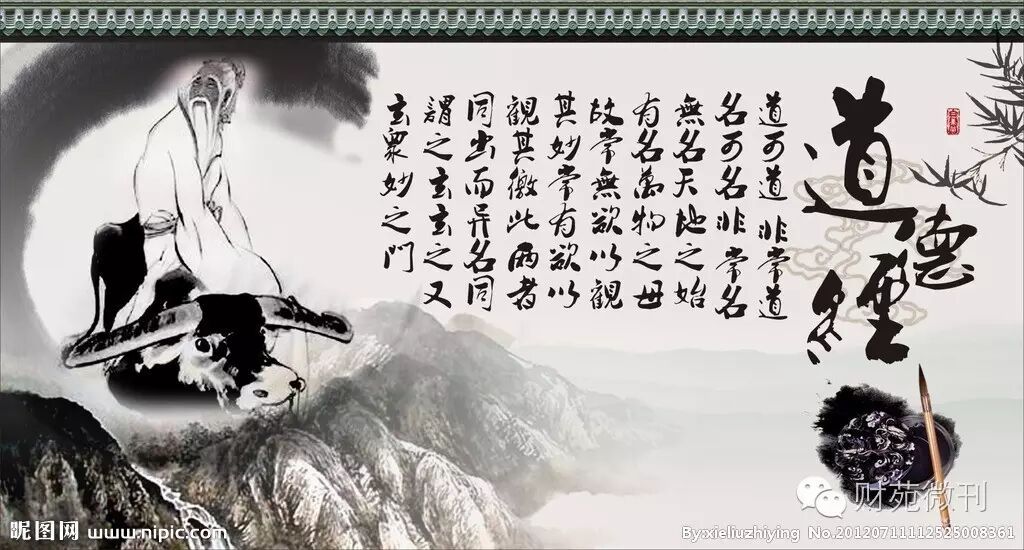 道德經
道可道 非常道
名可名非常名
無名天地之始
有名萬物之母
故常無欲以觀
其妙常有欲以
觀其徼此兩者
同出而异名同
謂之玄玄之又
玄衆妙之門
财苑微刊
昵图网 www.nipic.com
By:xieliuzhiying No.20120711112525008361